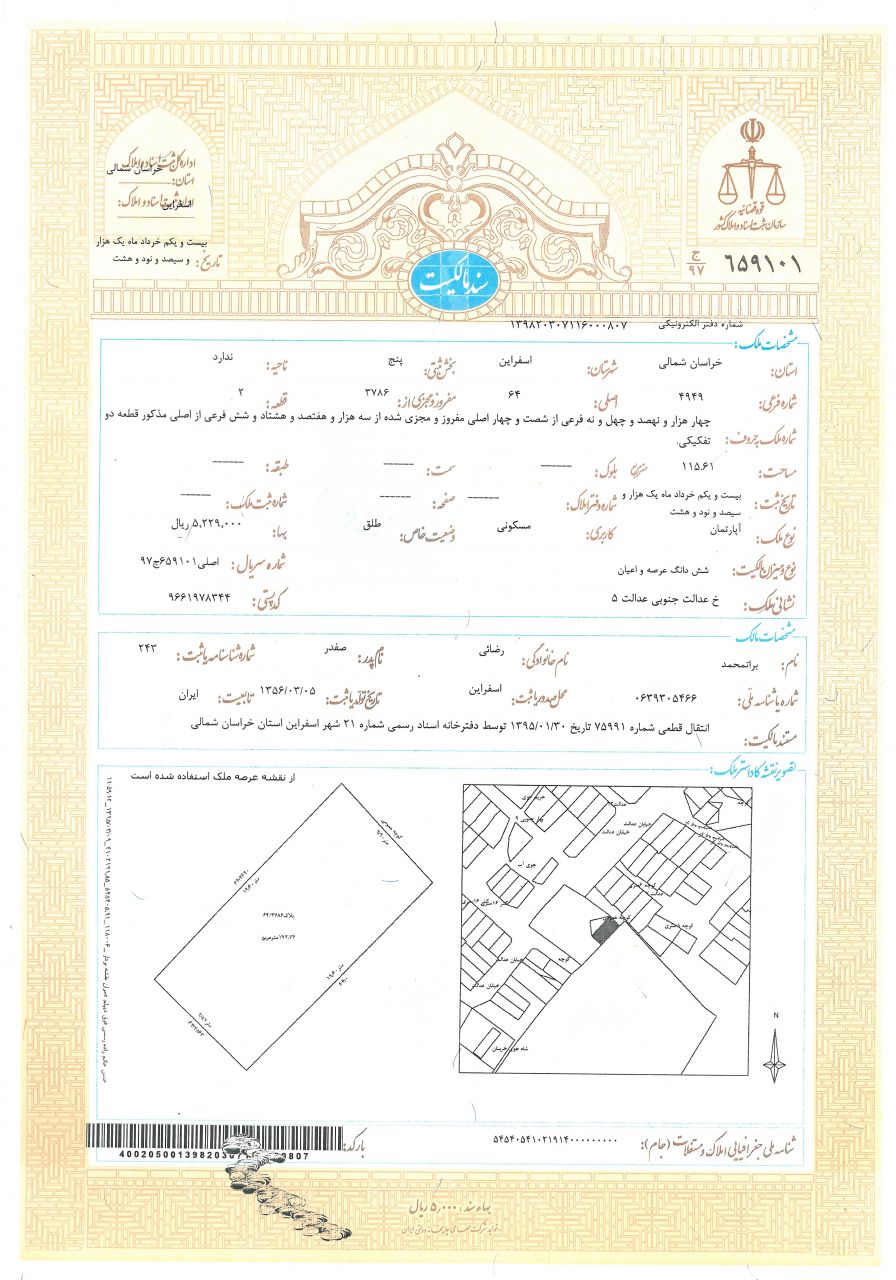 قوه قضائیه
سازمان ثبت اسناد و املاک کشور
۶۵۹۱۰۱ ج ۹۷
سند مالکیت
اداره کل ثبت اسناد و املاک
استان: خراسان شمالی
اداره ثبت اسناد و املاک: اسفراین
تاریخ: بیست و یکم خرداد ماه یک هزار و سیصد و نود و هشت
شماره دفتر الکترونیکی ۱۳۹۸۲۰۳۰۷۱۱۶۰۰۰۸۰۷
مشخصات ملک:
استان: خراسان شمالی شهرستان: اسفراین بخش ثبتی: پنج ناحیه: ندارد
شماره فرعی: ۴۹۴۹ اصلی: ۶۴ مفروز و مجزی از: ۳۷۸۶ قطعه: ۲
شماره ملک به حروف: چهار هزار و نهصد و چهل و نه فرعی از شصت و چهار اصلی مفروز و مجزی شده از سه هزار و هفتصد و هشتاد و شش فرعی از اصلی مذکور قطعه دو
تفکیکی.
مساحت: ۱۱۵.۶۱ متر مربع بلوک: ------ سمت: ------ طبقه: ------
تاریخ ثبت: بیست و یکم خرداد ماه یک هزار و سیصد و نود و هشت شماره دفتر املاک: ------ صفحه: ------ شماره ثبت ملک: ------
نوع ملک: آپارتمان کاربری: مسکونی وضعیت خاص: طلق بها: ۵,۲۲۹,۰۰۰ ریال
نوع و میزان مالکیت: شش دانگ عرصه و اعیان شماره سریال: اصلی ۶۵۹۱۰۱ج۹۷
نشانی ملک: خ عدالت جنوبی عدالت ۵ کد پستی: ۹۶۶۱۹۷۸۳۴۴
مشخصات مالک
نام: براتمحمد نام خانوادگی: رضائی نام پدر: صفدر شماره شناسنامه یا ثبت: ۲۴۳
شماره یا شناسه ملی: ۰۶۳۹۳۰۵۴۶۶ محل صدور یا ثبت: اسفراین تاریخ تولد یا ثبت: ۱۳۵۶/۰۳/۰۵ تابعیت: ایران
مستند مالکیت: انتقال قطعی شماره ۷۵۹۹۱ تاریخ ۱۳۹۵/۰۱/۳۰ توسط دفترخانه اسناد رسمی شماره ۲۱ شهر اسفراین استان خراسان شمالی
تصویر نقشه کاداستر ملک:
از نقشه عرصه ملک استفاده شده است
کوچه عمومی
متر ۱۹.۶۰
پلاک ۶۴/۳۷۸۶
۱۹۳.۷۶ مترمربع
متر ۱۹.۶۰
حریم جوی
عدالت
خیابان عدالت
خیابان عدالت
جوی آب
کوچه
خیابان عدالت
کوچه
خیابان عدالت
N
شناسه ملی جغرافیایی املاک و مستغلات (جام): ۵۴۵۴۰۵۴۱۰۲۱۹۱۴۰۰۰۰۰۰۰۰۰
بارکد:
بهاء سند: ۵,۰۰۰ ریال